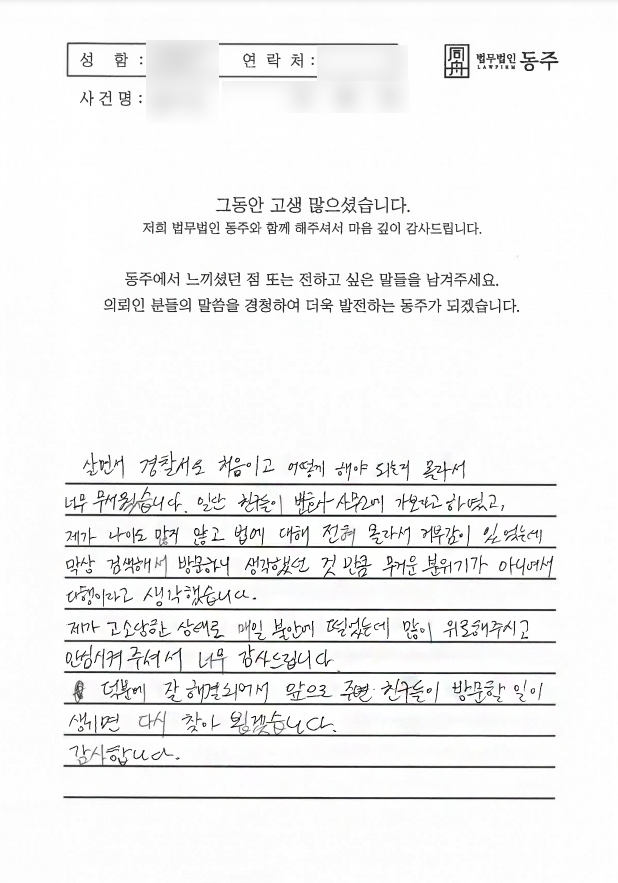 성 함 : 연 락 처 :
同舟 법무법인 동주
LAWFIRM
사 건 명 :
그동안 고생 많으셨습니다.
저희 법무법인 동주와 함께 해주셔서 마음 깊이 감사드립니다.
동주에서 느끼셨던 점 또는 전하고 싶은 말들을 남겨주세요.
의뢰인 분들의 말씀을 경청하여 더욱 발전하는 동주가 되겠습니다.
살면서 경찰서도 처음이고 어떻게 해야 되는지 몰라서
너무 무서웠습니다. 일단 친구들이 변호사 사무소에 가보라고 하였고,
제가 나이도 많지 않고 법에 대해 전혀 몰라서 거부감이 있었는데
막상 검색해서 방문하니 생각했던 것 만큼 무거운 분위기가 아니여서
다행이라고 생각했습니다.
제가 고소당한 상태로 매일 불안에 떨었는데 많이 위로해주시고
안심시켜 주셔서 너무 감사드립니다.
덕분에 잘 해결되어서 앞으로 주변 친구들이 방문할 일이
생기면 다시 찾아 뵙겠습니다.
감사합니다.